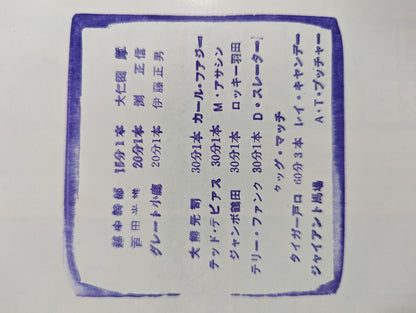 越中詩郎 15分1本 大仁田 厚
20分1本 渕 正信
グレート小鹿 20分1本 伊藤正男
大熊元司 30分1本 カール・ファジー
テッド・デビアス 30分1本 M・アサシン
ジャンボ鶴田 30分1本 ロッキー羽田
テリー・ファンク 30分1本 D・スレーター
タッグ・マッチ
タイガー戸口 60分3本 レイ・キャンデー
ジャイアント馬場 A・T・ブッチャー